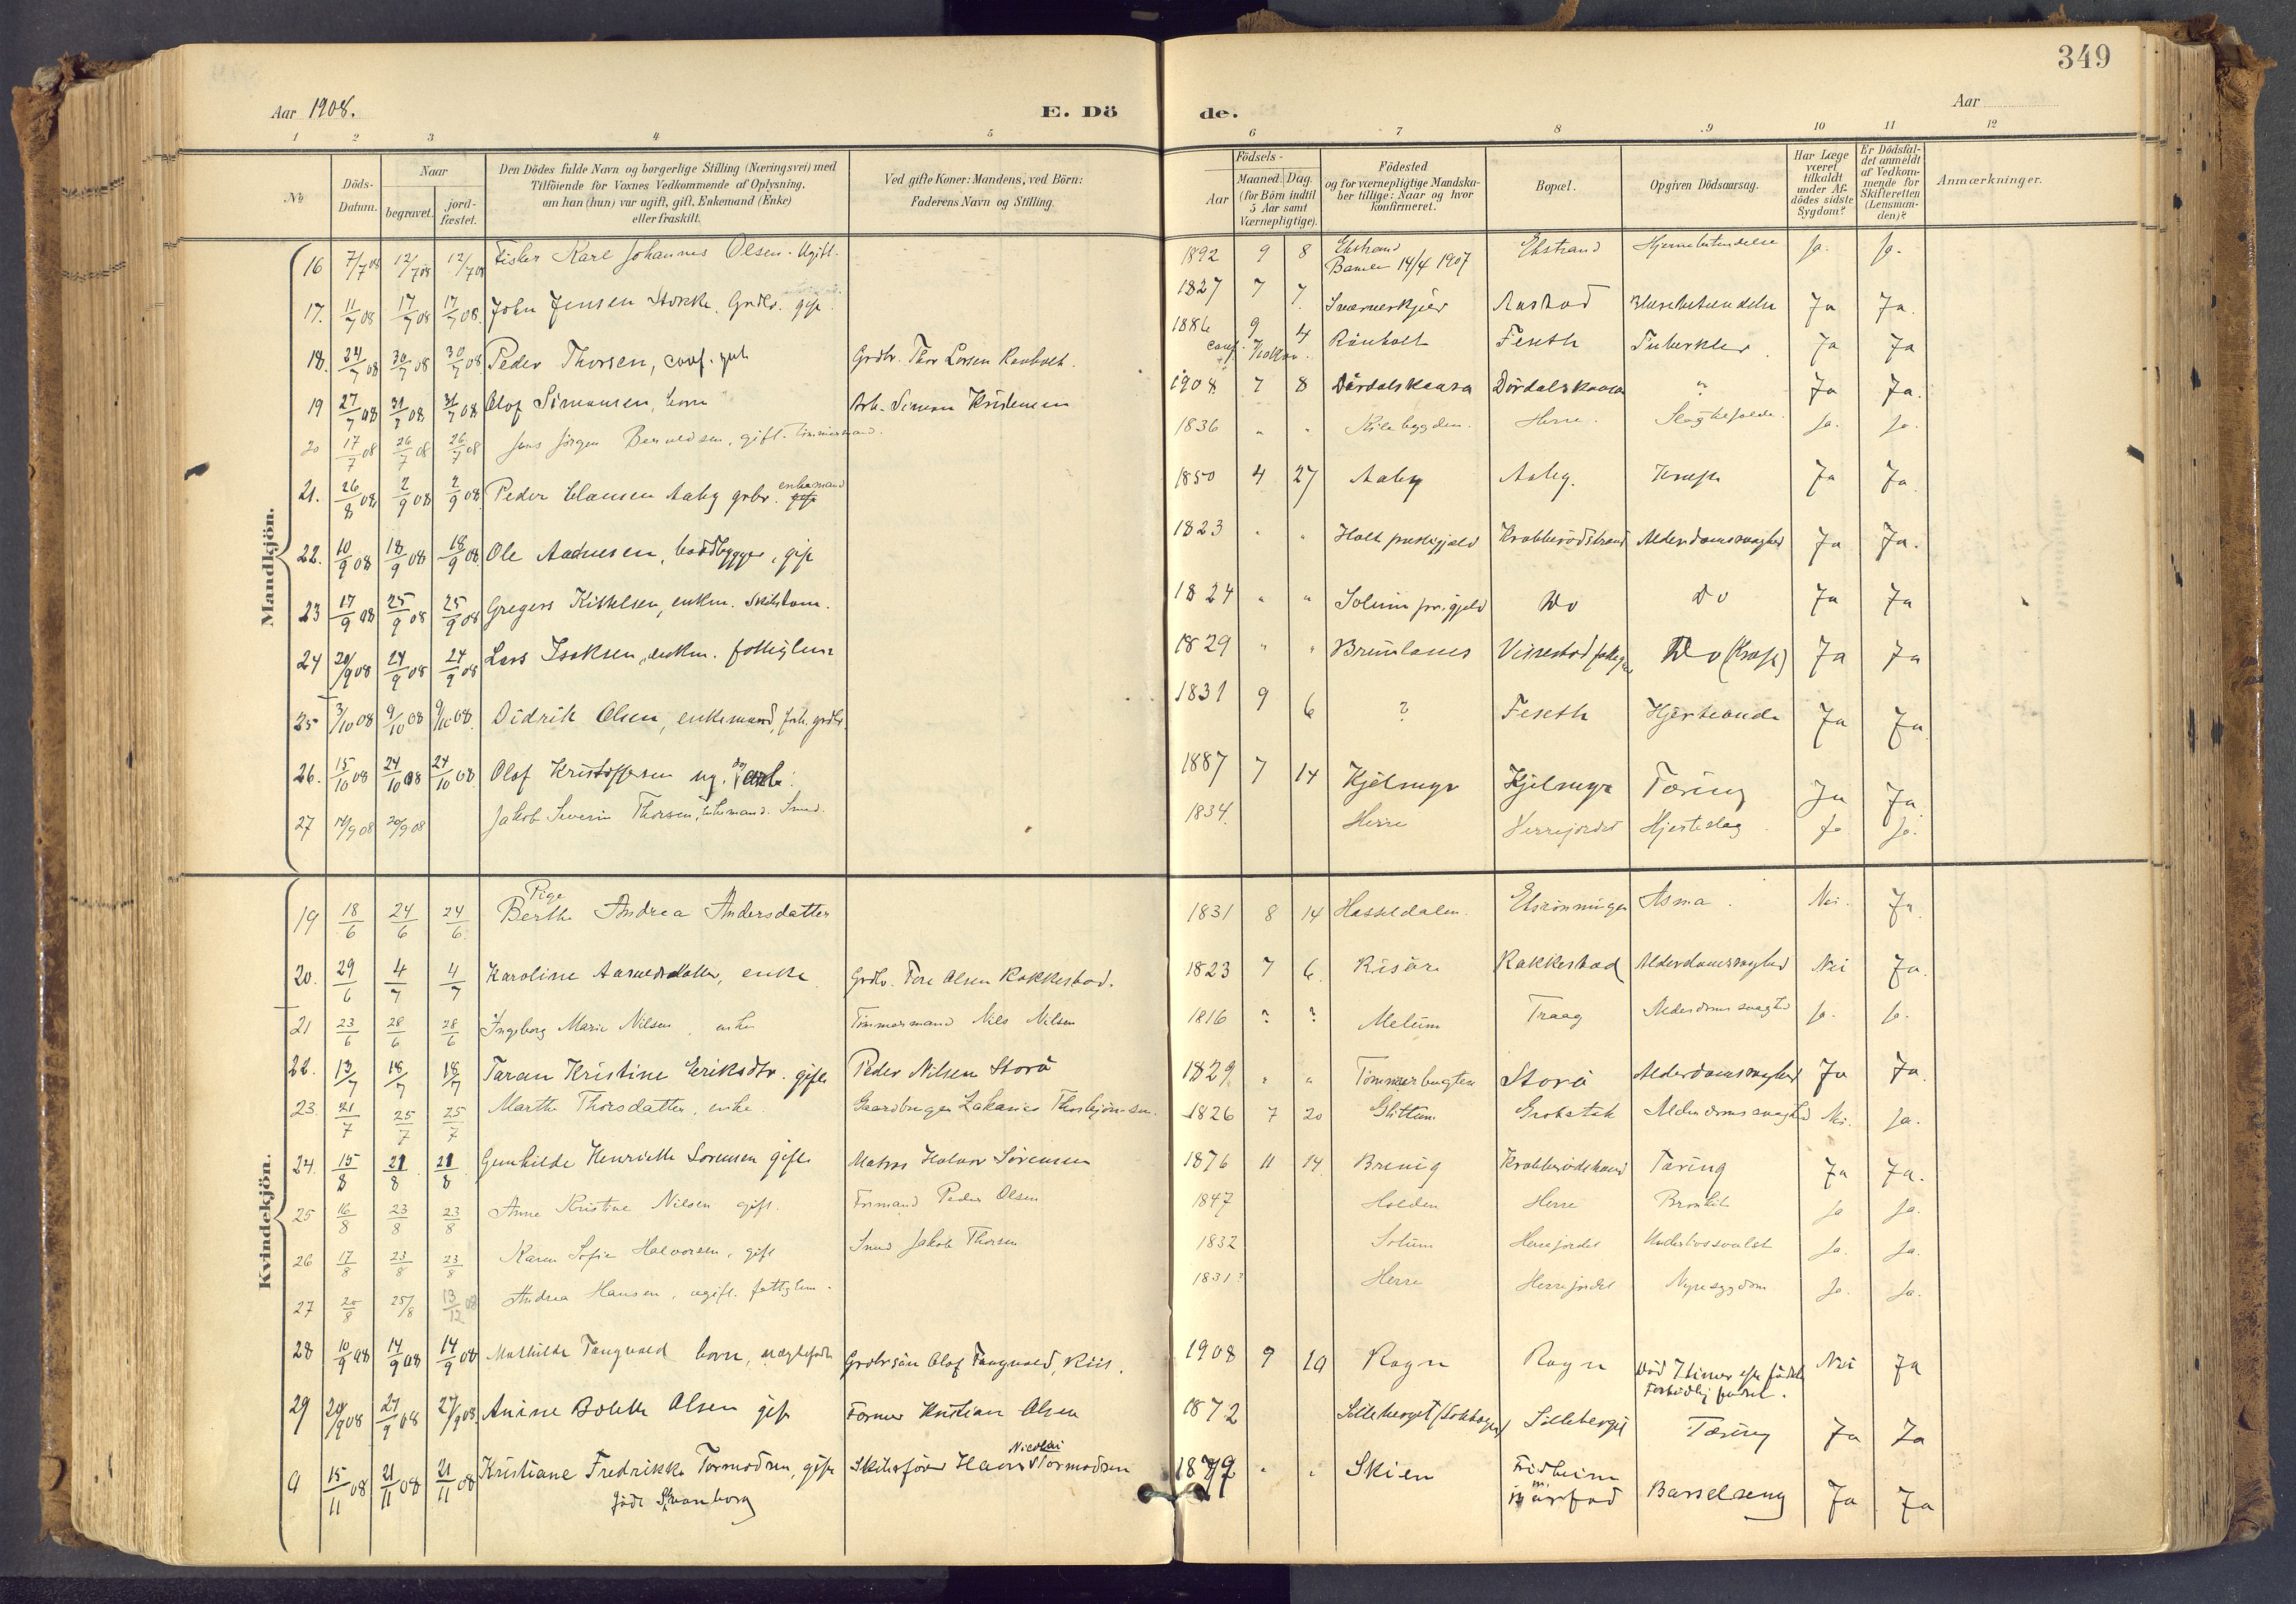 349
Aar 1908. E. Dö de. Aar
1 2 3 4 5 6 7 8 9 10 11 12
№
Döds-Datum.
Naar
begravet.
jord-fæstet.
Den Dödes fulde Navn og borgerlige Stilling (Næringsvei) med
Tilföiende for Voxnes Vedkommende af Oplysning.
om han (hun) var ugift, gift, Enkemand (Enke)
eller fraskilt.
Ved gifte Koner: Mandens, ved Börn:
Faderens Navn og Stilling.
Födsels-
Aar
Maaned. Dag.
(for Börn indtil
5 Aar samt
Værnepligtige).
Födested
og for værnepligtige Mandska-
ber tillige: Naar og hvor
konfirmeret.
Bopæl.
Opgiven Dödsaarsag.
Har Læge
været
tilkaldt
under Af-
dödes sidste
Sygdom?
Er Dödsfal-
det anmeldt
af Vedkom-
mende for
Skifteretten
(Lensman-
den)?
Anmærkninger.
Mandkjön.
16 7/7 08 12/7 08 12/7 08 Fisker Karl Johannes Olsen. Ugift. 1892 9 8 Ekstrand Bamle 14/4 1907 Ekstrand Hjernebetændelse Ja. Ja.
17. 11/7 08 17/7 08 17/7 08. John Jensen Stokke. Grdbr. gift. 1827 7 7. Aastad Blærebetændelse Ja Ja.
18. 24/7 08 30/7 08 30/7 08 Peder Thorsen, conf. gut Grdbr. Thor Larsen Rønholt. 1886 9 4 conf. Rönholt Feseth Tuberkler. Ja Ja
19 27/7 08 31/7 08 31/7 08 Olof Simonsen, barn Arb. Simon Kristensen 1908 7 8 Dördalskaasa Dördalskaasa " Ja Ja.
20 17/7 08 26/7 08 26/7 08 Jens Jörgen gift. Timmermand. 1836 " " Kilebygden. Herre. Ja. Ja.
21. 26/8 08 2/9 08 2/9 08 Peder Clausen Aaby grbr. gift enkemand 1850 4 27 Aaby Aaby. Kræft Ja Ja.
22. 10/9 08 18/9 08 18/9 08 Ole Aadnesen, baadbygger, gift 1823 " " Holt prestegjeld Krabberödstrand Alderdomssvaghed Ja Ja.
23 17/9 08 25/9 08 25/9 08 Gregers Kittelsen, enkm. Skibstöm. 1824 " " Solum pr.gjeld Do Do Ja Ja
24 20/9 08 24/9 08 24/9 08 Lars Isaksen, enkm. fattiglem 1829 " " Brunlanes Vissestad Do (Kræft) Ja Ja
25 3/10 08 9/10 08 9/10 08. Didrik Olsen, enkemand, forh. grdbr. 1831 9 6 ? Feseth Hjerteonde Ja Ja.
26. 15/10 08 24/10 08 24/10 08 Olof Kristoffersen ug. 1887 7 14 Kjelmyr Kjelmyr Tæring Ja Ja
27 14/9 08 20/9 08 Jakob Severin Thorsen, Enkemand. Smed. 1834. Herre Herrejordet Hjerteslag. Ja Ja.
Kvindekjön.
19 18/6 24/6 24/6. Pige Berthe Andrea Andersdatter 1831 8 14 Hasseldalen. Asma. Nei. Ja.
20. 29/6 4/7 4/7 Karoline Aanundsdatter, enke Grdbr. Tore Olsen Rakkestad. 1823 7 6 Risöre Rakkestad Alderdomssvaghed Nei Ja.
21 23/6 28/6 28/6 Ingeborg Marie Nilsen, enke Timmermand Nils Nilsen 1816 ? ? Melum Traag Alderdomssvaghed Ja. Ja.
22. 13/7 18/7 18/7 Taran Kristine Eriksdtr. gift Peder Nilsen Storö 1829 " " Tömmerbugten Storö Alderdomssvaghed Ja Ja.
23. 21/7 25/7 25/7 Marthe Thorsdatter, enke. Gaardbruger Zakarias Thorbjörnsen. 1826 7 20 Glittum Grobstok Alderdomssvaghed Nei. Ja.
24. 15/8 21/8 21/8 Gunhilde Henriette Sörensen gift Matros Halvor Sörensen 1876 11 14 Brevig Krabberödstrand Tæring Ja Ja.
25 16/8 23/8 23/8 Anne Kristine Nilsen gift. Formand Peder Olsen 1847 Holden Herre Bronkit Ja Ja.
26 17/8 23/8 23/8 Karen Sofie Halvorsen, gift Smed Jakob Thorsen 1832 Solum Herrejordet Underlivssvulst Ja. Ja.
27 20/8 25/8 13/12 08 Andrea Hansen, ugift. fattiglem. 1831? Herre Herrejordet Nyresygdom Ja. Ja.
28 10/9 08 14/9 08 14/9 08 Mathilde Tangvald barn, uægtefödt Grdbrsön Olof Tangvald, Riis. 1908 9 10 Rogn Rogn Död 7 timer efter födsel Fortidlig födsel. Nei Ja
29 20/9 08 27/9 08 27/9 08 Anine Bolette Olsen gift Former Kristian Olsen 1872 Lilleberget Tæring Ja Ja
9 15/11 08 21/11 08 21/11 08 Kristiane Fredrikke Tormodsen, gift Skibsförer Hans Nicolai Tormodsen 1879 " " Skien Fridheim Barselseng Ja Ja
född Svanborg